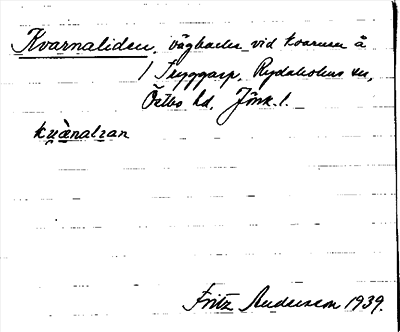 Kvarnaliden, vägbacke vid kvarnen å
1 Tryggarp, Rydaholms sn,
Östbo hd, Jönk. l.
kvànalian
Fritz Andersson 1939.